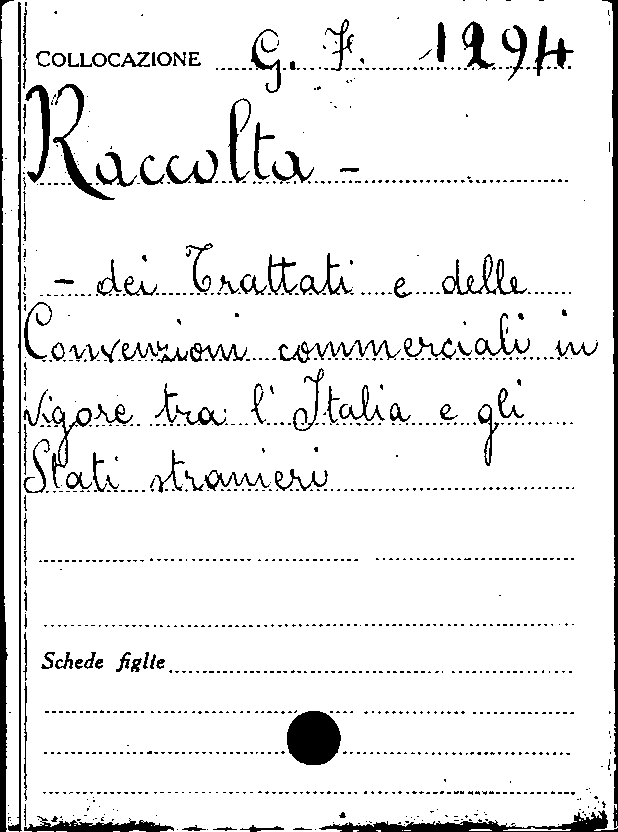 COLLOCAZIONE G. F. 1294
Raccolta -
- dei Trattati e delle
Convenzioni commerciali in
vigore tra l'Italia e gli
Stati stranieri
Schede figlie